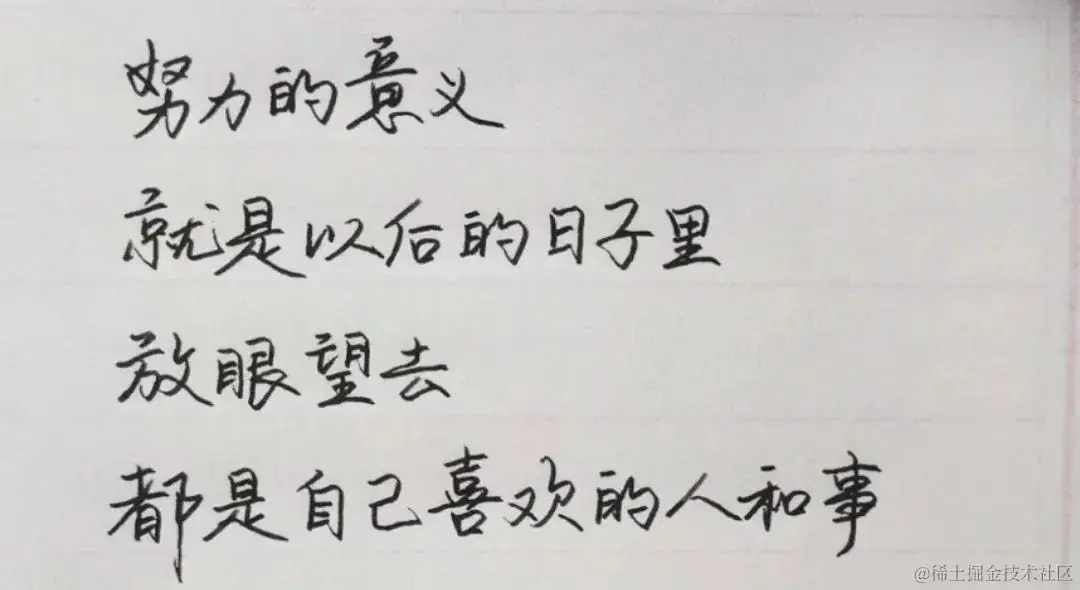 努力的意义
就是以后的日子里
放眼望去
都是自己喜欢的人和事
@稀土掘金技术社区